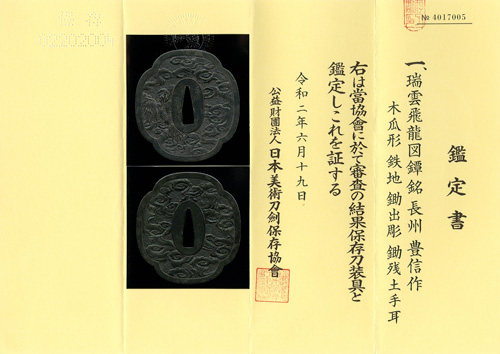 鑑定書
一、瑞雲飛龍図鐔 銘 長州 豊信作
木瓜形 鉄地 鋤出彫 鋤残土手耳
右は當協會に於て審査の結果保存刀装具と
鑑定しこれを証する
令和二年六月十九日
公益財團法人 日本美術刀劍保存協會
№ 4017005